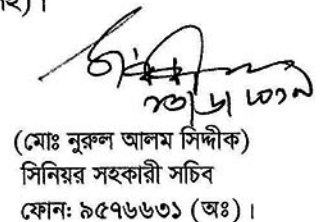 (মোঃ নুরুল আলম সিদ্দীক)
সিনিয়র সহকারী সচিব
ফোনঃ ৯৫৭৬৬৩১ (অঃ) ।